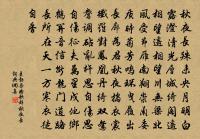 秋夜長殊未央月明白
露澄清光層城綺閣遙
相望遙相望川無梁北
風受節南雁翔崇蘭委
質時菊芳鳴環曳履出
長廊為君秋夜搗衣裳
纖羅對鳳凰丹綺雙鴛
鴦調砧亂杵思自傷思
自傷征夫萬里戍他鄉
鶴關音信斷龍門道路
長所在天一方寒衣徒
自香